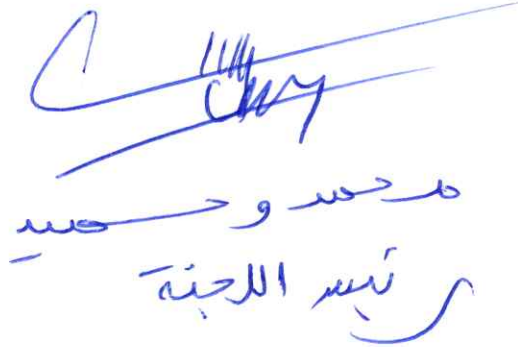 محمد وحميد
رئيس اللجنة